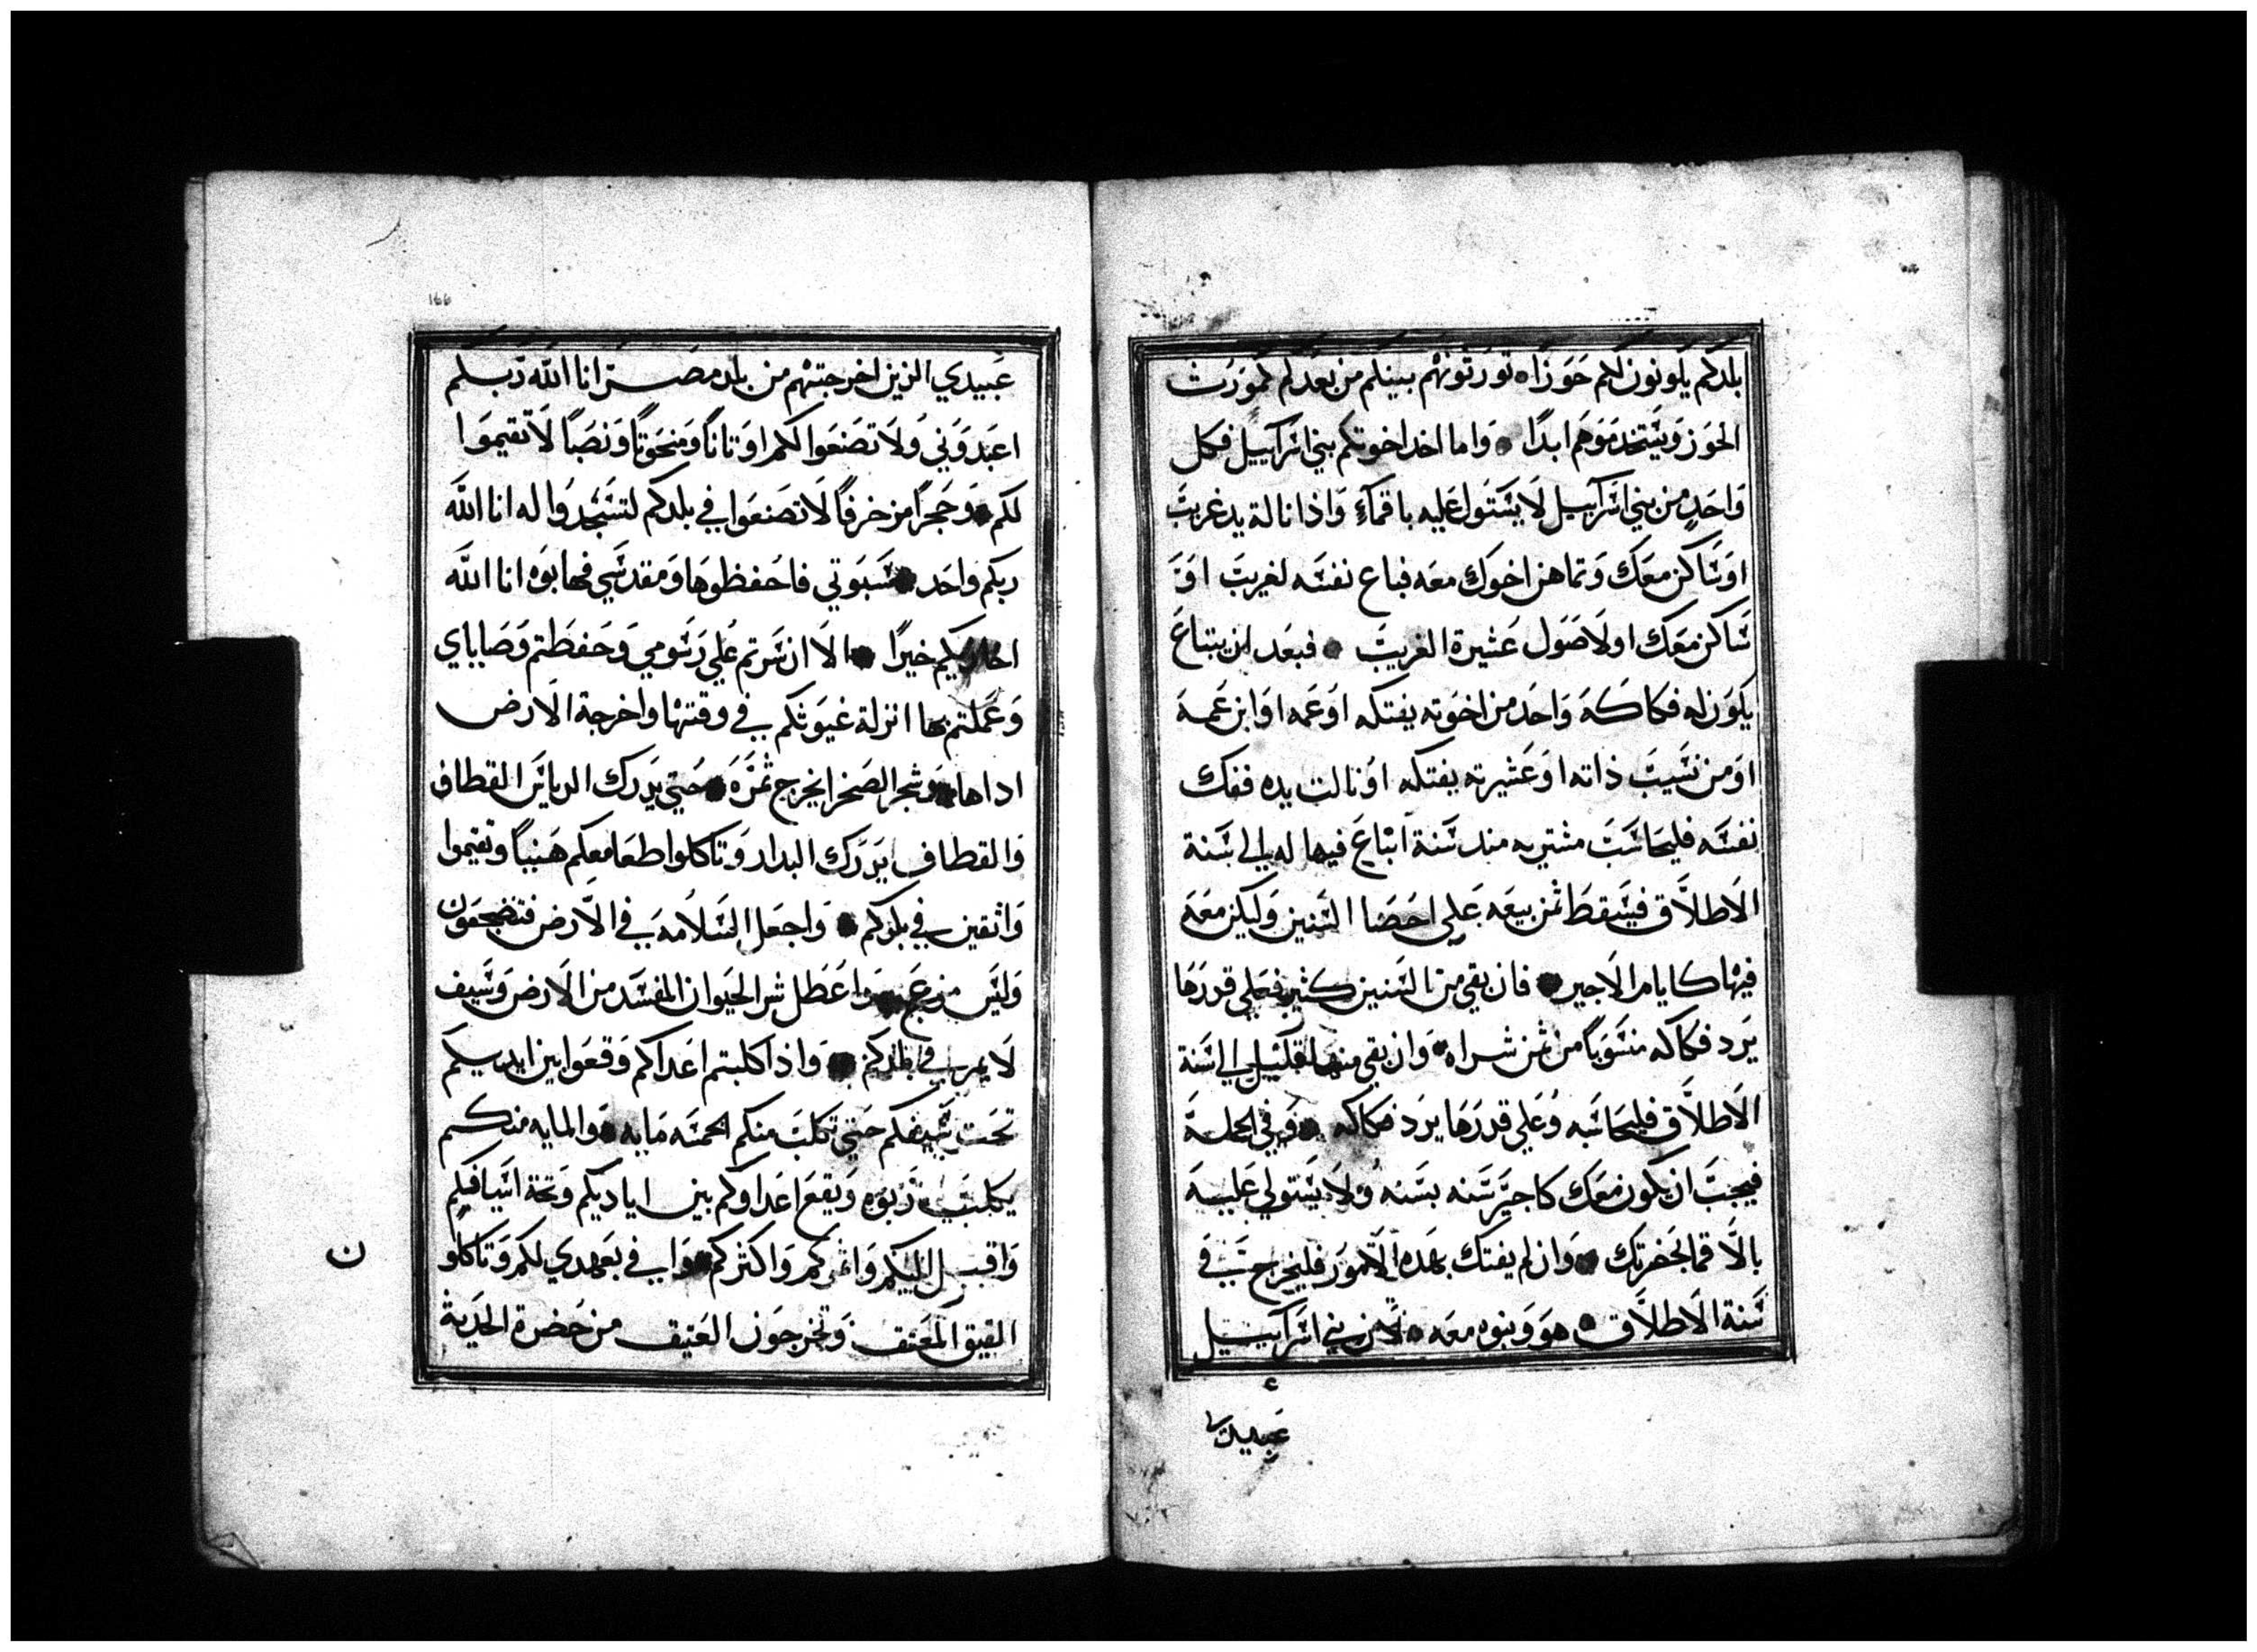 بلدكم يكونون لكم حوزا تورثونهم ببنيكم من بعدكم لمورث
الحوز ويستخدموهم ابدا واما اخد اخوتكم بني اسراييل فكل
واحد من بني اسراييل لا يستول عليه باقماء واذا نالة يد غريب
او ساكن معك وتماهن اخوك معه فباع نفسه لغريب او
ساكن معك او لاصول عشيرة الغريب فبعد ان يبتاع
يكون له فكاكه واحد من اخوته يفتكه او عمه او ابن عمه
او من نسيب ذاته او عشيرته يفتكه او نالت يده ففك
نفسه فليحاسب مشتريه مند سنة ابتاع فيها له الي سنة
الاطلاق فيسقط ثمن بيعه علي احصا السنين وليكن معه
فيها كايام الاجير فان بقي من السنين كثير فعلي قدرها
يرد فكاكه منسوبا من ثمن شراه وان بقي منها قليل الي سنة
الاطلاق فليحاسبه وعلي قدرها يرد فكاكه وفي الجملة
فيجب ان يكون معك كاجير سنه بسنه ولا يستولي عليه
بالاقما بحضرتك وان لم يفتك بهده الامور فليخرج في
سنة الاطلاق هو وبنوه معه لان بني اسراييل
عبيدي
عبيدي الدين اخرجتهم من بلد مصر انا الله ربكم
اعبدوني ولا تصنعوا لكم اوتانا ومنحوتا ونصبا لا تقيموا
لكم وحجرا مزخرفا لا تصنعوا في بلدكم لتسجدوا له انا الله
ربكم واحد سبوتي فاحفظوها ومقدسي فهابوه انا الله
اجازيكم خيرا الا ان سرتم علي رسومي وحفظتم وصاياي
وعملتم بها انزلة غيوتكم في وقتها واخرجة الارض
اداها وشجر الصخرا يخرج ثمره حتي يدرك الدياس القطاف
والقطاف يدرك البدار وتاكلوا طعامعكم هنييا وتقيموا
واثقين في بلدكم واجعل السلامه في الارض فتضجعون
وليس مزعج واعطل شر الحيوان المفسد من الارض وسيف
لا يمر في بلدكم واذا كلبتم اعداكم وقعوا بين ايديكم
تحت سيفكم حتي تكلب منكم الخمسه مايه والمايه منكم
يكلب ربوه ويقع اعداوكم بين اياديكم وتحة اسيافكم
واقبل اليكم واثمركم واكثركم واوفي بعهدي لكم وتاكلو
ن
العتيق المعتق وتخرجون العتيق من حضرة الحدية